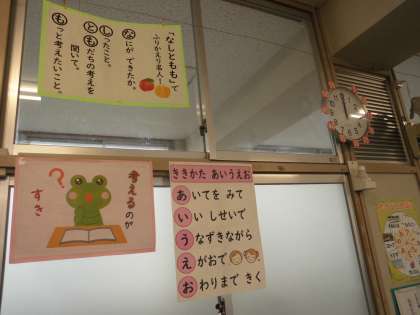 「なしともも」で
ふりかえり名人!
なにができたか。
しったこと。
ともだちの考えを
聞いて。
もっと考えたいこと。
考えるのが
すき
?
ききかた あいうえお
あいてを みて
いい しせいで
うなずきながら
えがおで
おわりまで きく